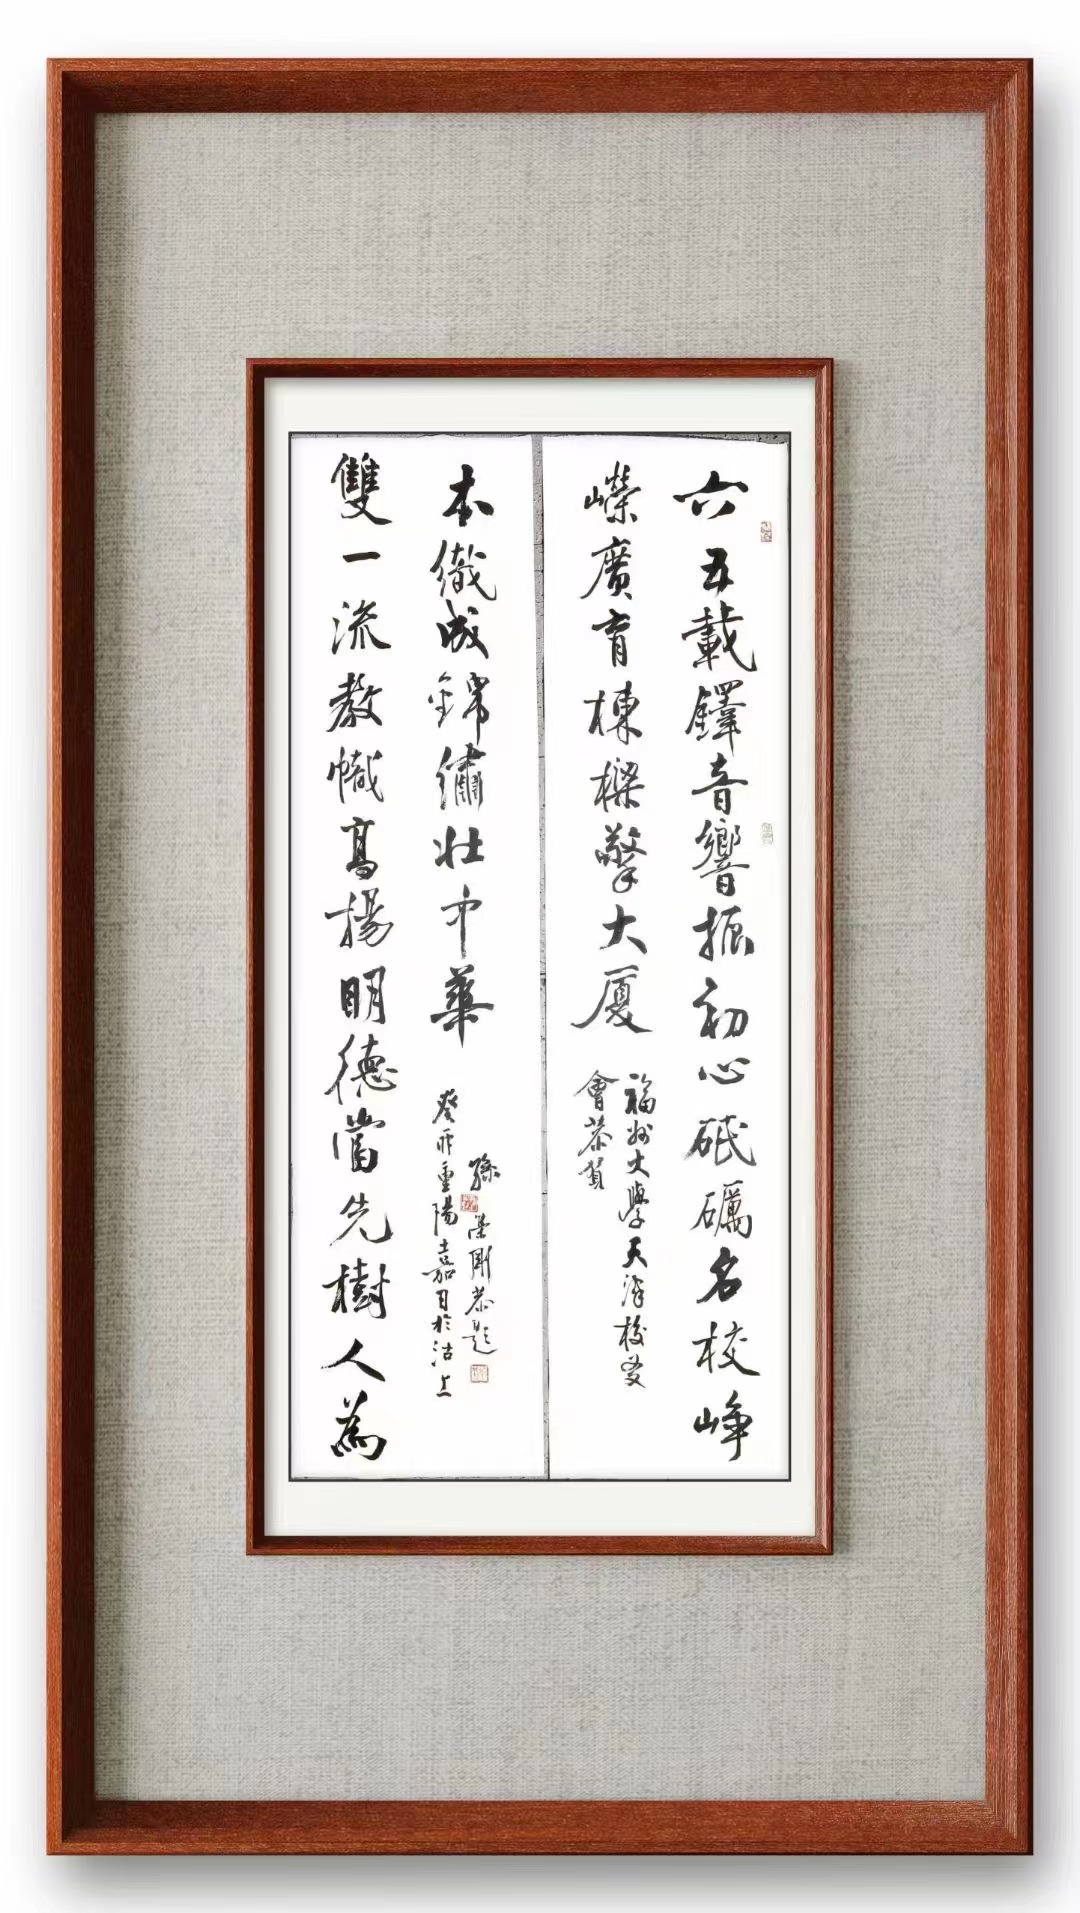 六五載鐸音響振初心砥礪名校崢
嶸廣育棟樑擎大厦
福州大學天津校友
會恭賀
雙一流教幟高揚明德當先樹人為
本織成錦繡壯中華
癸卯重陽嘉日於沽上
孫剛恭題